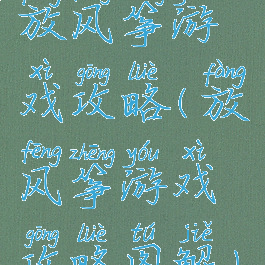 放风筝游
xì gōng lüè fàng
戏攻略(放
fēng zhēng yóu xì
风筝游戏
gōng lüè tú jiě
攻略图解)